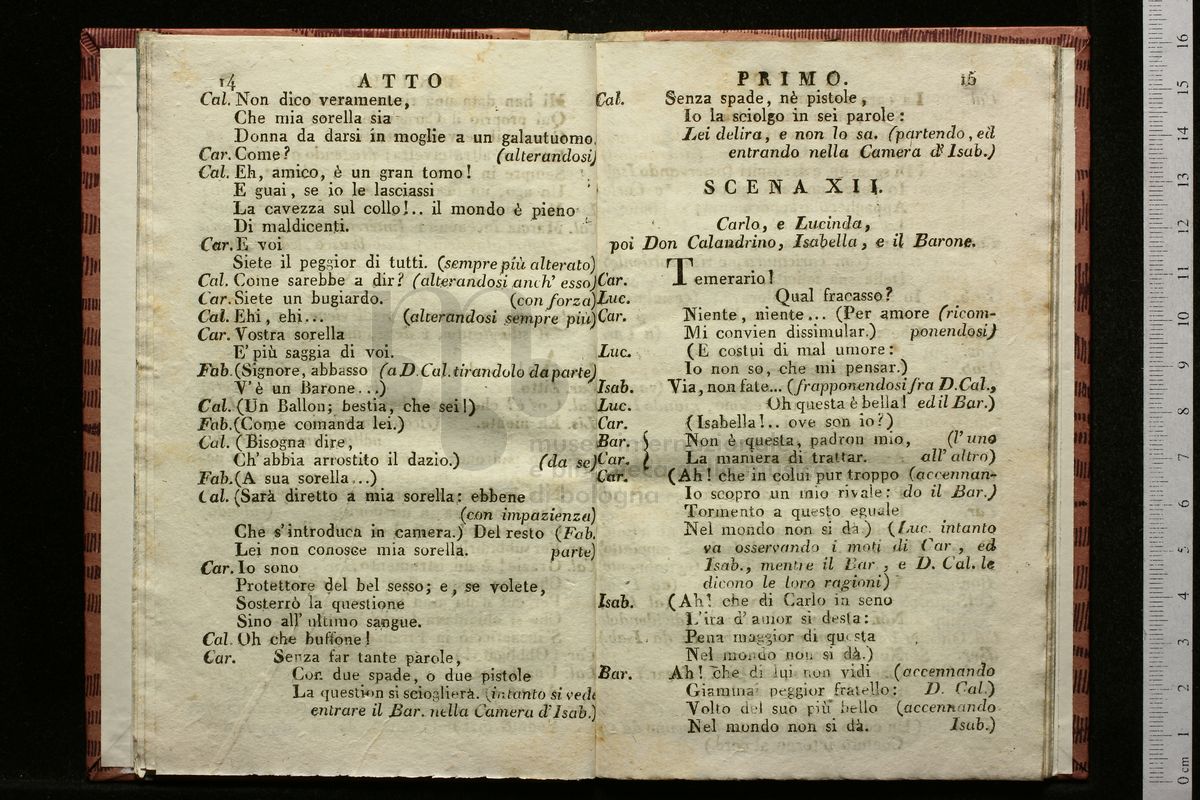 14 ATTO
Cal. Non dico veramente,
Che mia sorella sia
Donna da darsi in moglie a un galautuomo.
Car. Come? (alterandosi)
Cal. Eh, amico, è un gran tomo!
E guai, se io le lasciassi
La cavezza sul collo!.. il mondo è pieno
Di maldicenti.
Car. E voi
Siete il peggior di tutti. (sempre più alterato)
Cal. Come sarebbe a dir? (alterandosi anch' esso)
Car. Siete un bugiardo. (con forza)
Cal. Ehi, ehi... (alterandosi sempre più)
Car. Vostra sorella
E' più saggia di voi.
Fab. (Signore, abbasso (a D. Cal. tirandolo da parte)
V'è un Barone...)
Cal. (Un Ballon; bestia, che sei!)
Fab. (Come comanda lei.)
Cal. (Bisogna dire,
Ch'abbia arrostito il dazio.) (da se)
Fab. (A sua sorella...)
Cal. (Sarà diretto a mia sorella: ebbene
(con impazienza)
Che s'introduca in camera.) Del resto (Fab.
Lei non conosce mia sorella. parte)
Car. Io sono
Protettore del bel sesso; e, se volete,
Sosterrò la questione
Sino all' ultimo sangue.
Cal. Oh che buffone!
Car. Senza far tante parole,
Con due spade, o due pistole
La question si scioglierà. (intanto si vede
entrare il Bar. nella Camera d'Isab.)
PRIMO. 15
Cal. Senza spade, nè pistole,
Io la sciolgo in sei parole:
Lei delira, e non lo sa. (partendo, ed
entrando nella Camera d'Isab.)
SCENA XII.
Carlo, e Lucinda,
poi Don Calandrino, Isabella, e il Barone.
Car. Temerario!
Luc. Qual fracasso?
Car. Niente, niente... (Per amore (ricom-
Mi convien dissimular.) ponendosi)
Luc. (E costui di mal umore:
Io non so, che mi pensar.)
Isab. Via, non fate... (frapponendosi fra D. Cal.,
Luc. Oh questa è bella! ed il Bar.)
Car. (Isabella!.. ove son io?)
Bar. { Non è questa, padron mio, (l'uno
Car. { La maniera di trattar. all' altro)
Car. (Ah! che in colui pur troppo (accennan-
Io scopro un mio rivale: do il Bar.)
Tormento a questo eguale
Nel mondo non si dà.) (Luc. intanto
va osservando i moti di Car., ed
Isab., mentre il Bar., e D. Cal. le
dicono le loro ragioni)
Isab. (Ah! che di Carlo in seno
L'ira d'amor si desta:
Pena maggior di questa
Nel mondo non si dà.)
Bar. Ah! che di lui non vidi (accennando
Giammai peggior fratello: D. Cal.)
Volto del suo più bello (accennando
Nel mondo non si dà. Isab.)